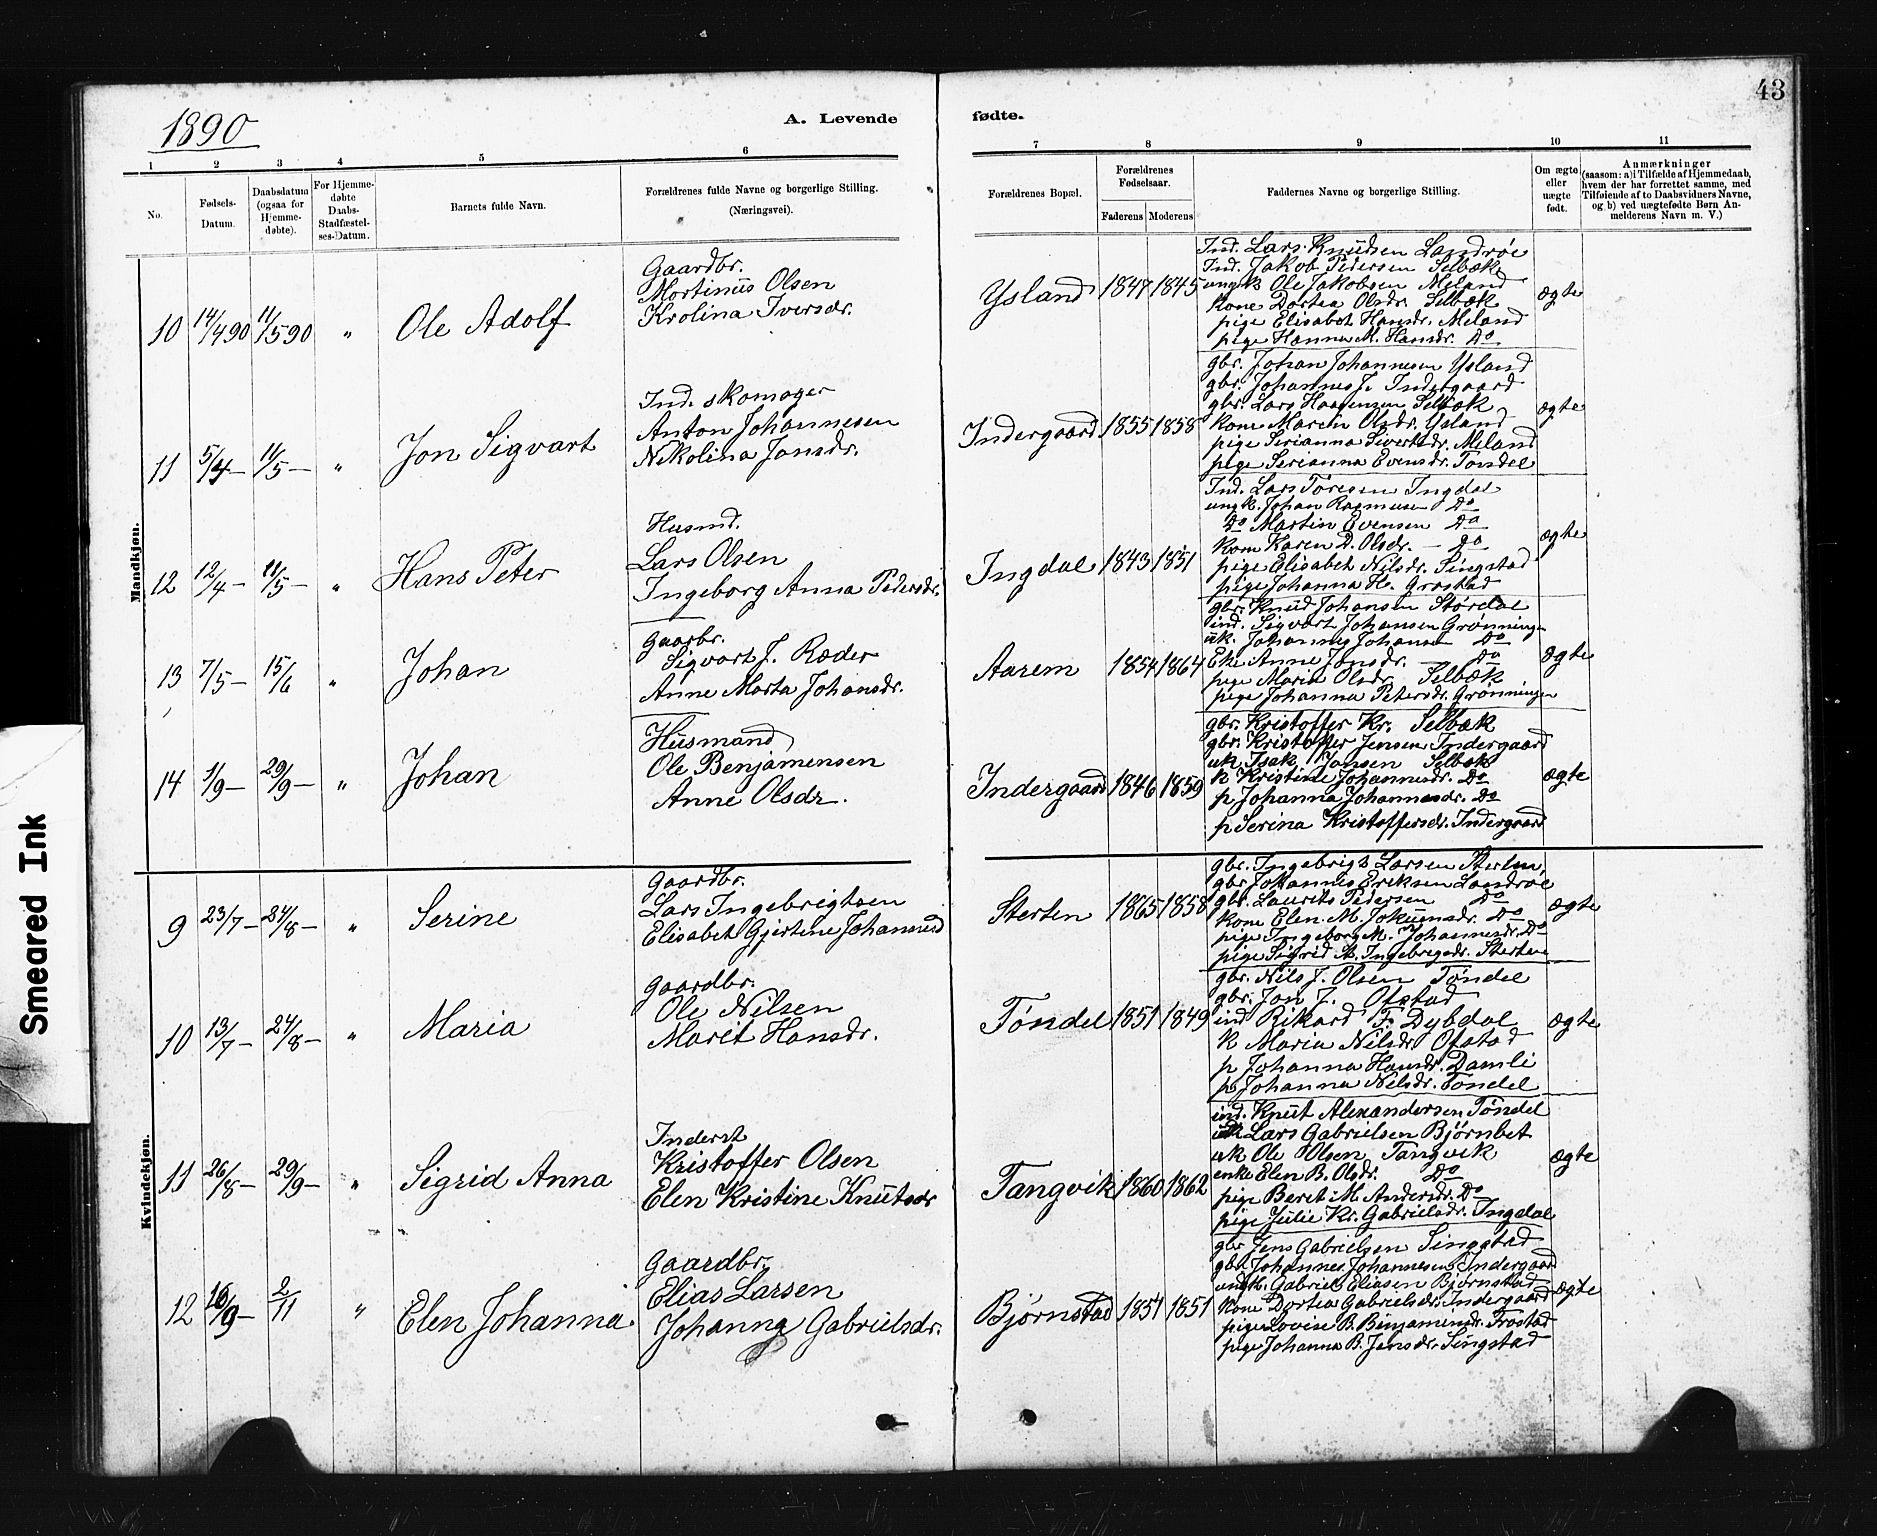 43
1890
A. Levende fødte.
1 2 3 4 5 6 7 8 9 10 11
No.
Fødsels-Datum.
Daabsdatum (ogsaa for Hjemme-døbte).
For Hjemme-døbte Daabs-Stadfæstel-ses-Datum.
Barnets fulde Navn.
Forældrenes fulde Navne og borgerlige Stilling.
(Næringsvei).
Forældrenes Bopæl.
Forældrenes Fødselsaar.
Faderens Moderens
Faddernes Navne og borgerlige Stilling.
Om ægte eller uægte født.
Anmærkninger
(saasom: a) i Tilfælde af Hjemmedaab,
hvem der har forrettet samme, med
Tilføiende af to Daabsvidners Navne,
og b) ved uægtefødte Børn An-
melderens Navn m. V.)
Mandkjøn.
10 14/4 90 11/5 90 " Ole Adolf
Gaardbr.
Mortinus Olsen
Krolina Iversdr.
Ysland 1847 1845
Ind. Lars Knudsen Landrøe
Ind. Jakob Pedersen Selbæk
ungk Ole Jakobsen Meland
Kone Dortea Olsdr. Selbæk
pige Elisabet Hansdr. Meland
pige Hanna M. Hansdr. Do
ægte
11 5/4 – 11/5 – " Jon Sigvart
Ind. skomager
Anton Johannesen
Nikolina Jonsdr.
Indergaard 1855 1858
gbr. Johan Johannesen Ysland
gbr. Johannes J. Indergaard
gbr. Lars Haagensen Selbæk
Kone Maren Olsdr. Ysland
pige Serianna Sivertsdr. Meland
pige Serianna Evensdr. Tøndel
ægte
12 12/4 – 11/5 – " Hans Peter
Husmd.
Lars Olsen
Ingeborg Anna Pedersdr.
Ingdal 1843 1851
Ind. Lars Toresen Ingdal
ungk. Johan Rasmusen Do
Do Martin Evensen Do
Kone Karen D. Olsdr. – Do
pige Elisabet Nilsdr. Singstad
pige Johanna H. Grostad
ægte
13 7/5 – 15/6 " Johan
Gaarbr.
Sigvart J. Røder
Anne Marta Johansdr.
Aarem 1854 1864
gbr. Knud Johansen Størdal
ind. Sigvart Johansen Grønningen
uk. Johannes Johansen Do
Eke Anne Jonsdr. – Do
pige Maria Olsdr. Selbæk
pige Johanna Petersdr. Grønningen
ægte
14 1/9 – 29/9 – " Johan
Husmand
Ole Benjamensen
Anne Olsdr.
Indergaard 1846 1859
gbr. Kristoffer Kr. Selbæk
gbr. Kristoffer Jensen Indergaard
uk Isak Jonsen Selbæk
k Kristine Johannesdr. Do
p Johanna Johannesdr. Do
p Serina Kristoffersdr. Indergaard
ægte
Kvindekjøn.
9 23/7 – 24/8 – " Serine
Gaardbr.
Lars Ingebrigtsen
Elisabet Gjertine Johannesd
Sterten 1865 1858
gbr. Ingebrigt Larsen Sterten
gbr Johannes Eriksen Landrøe
gbr. Laurits Pedersen Do
Kone Elen M. Jokumsdr. Do
pige Ingeborg M. Johannesdr. Do
pige Sigrid A. Ingebregsdr. Sterten
ægte
10 13/7 – 24/8 – " Maria
Gaardbr.
Ole Nilsen
Marit Hansdr.
Tøndel 1851 1849
gbr. Nils J. Olsen Tøndel
gbr. Jon J. Ofstad
ind Rikard F. Dybdal
k Maria Nilsdr. Ofstad
p Johanna Hansdr. Damli
p Johanna Nilsdr. Tøndel
ægte
11 26/8 – 29/9 – " Sigrid Anna
Inderst
Kristoffer Olsen
Elen Kristine Knutsdr
Tangvik 1860 1862
ind. Knut Alexandersen Tøndel
uk Lars Gabrielsen Bjørnbet
uk Ole Olsen Tangvik
enke Elen B. Olsdr. Do
pige Beret M. Andersdr. Do
pige Julie Kr. Gabrielsdr. Ingdal
ægte
12 16/9 – 2/11 " Elen Johanna
Gaardbr.
Elias Larsen
Johanna Gabrielsdr.
Bjørnstad 1851 1851
gbr Jens Gabrielsen Singstad
gbr. Johannes Johannesen Indergaard
ungk. Gabriel Eliasen Bjørnstad
Kone Dortea Gabrielsdr. Indergaard
pige Lovise B. Benjaminsdr. Frostad
pige Johanna B. Jensdr. Singstad
ægte
Smeared Ink